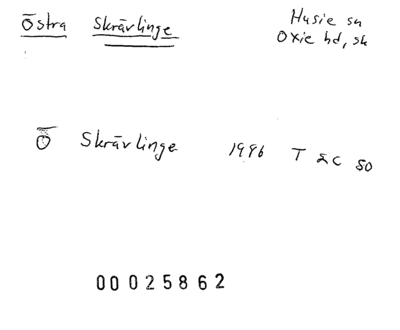 Östra Skrävlinge
Husie sn
Oxie hd, sk
Ö Skrävlinge 1996 T äc so
00025862